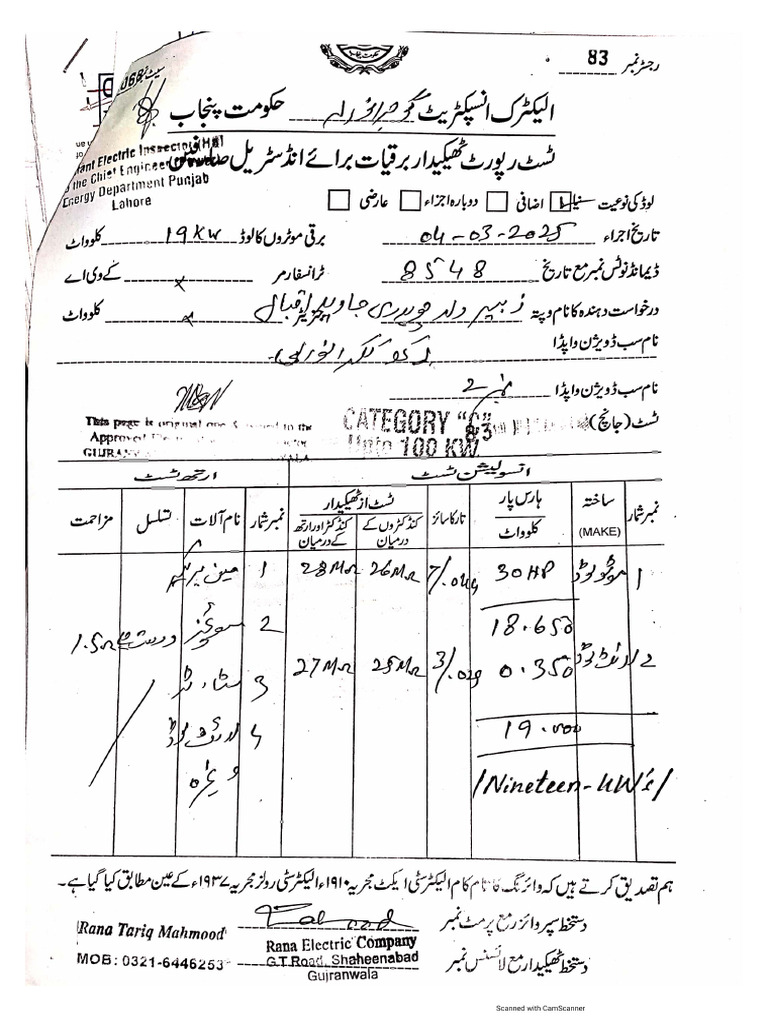 رجسٹر نمبر 83
سیٹ نمبر 068
الیکٹرک انسپکٹریٹ گوجرانوالہ حکومت پنجاب
ٹسٹ رپورٹ ٹھیکیدار برقیات برائے انڈسٹریل صارفین
Electric Inspector (HQ)
the Chief Engineer
Energy Department Punjab
Lahore
لوڈ کی نوعیت نیا اضافی دوبارہ اجراء عارضی
تاریخ اجراء 04-03-2025 برقی موٹروں کا لوڈ 19 KW کلو واٹ
ڈیمانڈ نوٹس نمبر مع تاریخ 8548 ٹرانسفارمر x کے وی اے
درخواست دہندہ کا نام و پتہ زبیر ولد چوہدری جاوید اقبال x کلو واٹ
نام سب ڈویژن واپڈا
نام سب ڈویژن واپڈا نمبر 2
ٹسٹ (جانچ) 83
This page is original one & issued to the
Approved
CATEGORY "C"
Upto 100 KW
انسولیشن ٹسٹ ارتھ ٹسٹ
نمبر شمار ساختہ (MAKE) ہارس پار کلو واٹ تار کا سائز ٹسٹ از ٹھیکیدار کنڈکٹروں کے درمیان کنڈکٹر اور ارتھ کے درمیان نمبر شمار نام آلات تسلسل مزاحمت
1 موٹر لوڈ 30 HP 7/.044 26MΩ 28MΩ 1 مین
18.650 2 سوئچز درست ہے 1.5Ω
2 لائٹ لوڈ 0.350 3/.029 25MΩ 27MΩ 3 سٹارٹر
19.000 4 لائٹ لوڈ
وغیرہ
/Nineteen-KW's/
ہم تصدیق کرتے ہیں کہ وائرنگ کا تمام کام الیکٹرسٹی ایکٹ مجریہ ۱۹۱۰ء الیکٹرسٹی رولز مجریہ ۱۹۳۷ء کے عین مطابق کیا گیا ہے۔
دستخط سپروائزر مع پرمٹ نمبر
Rana Tariq Mahmood
Rana Electric Company
دستخط ٹھیکیدار مع لائسنس نمبر
G.T Road, Shaheenabad
MOB: 0321-6446253
Gujranwala
Scanned with CamScanner